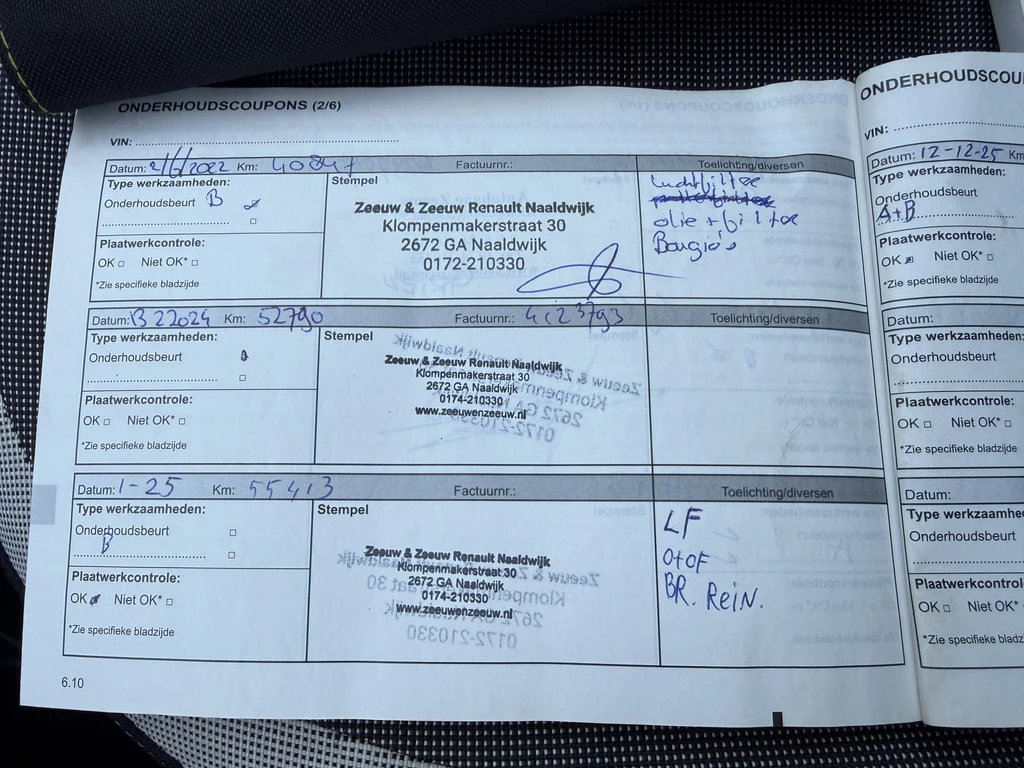 ONDERHOUDSCOUPONS (2/6)
VIN:
Datum: 2/6/2022 Km: 40847 Factuurnr.: Toelichting/diversen
Type werkzaamheden:
Onderhoudsbeurt B
Plaatwerkcontrole:
OK Niet OK*
*Zie specifieke bladzijde
Stempel
Zeeuw & Zeeuw Renault Naaldwijk
Klompenmakerstraat 30
2672 GA Naaldwijk
0172-210330
Luchtfilter
olie + filter
Bougio's
Datum: Km: 52790 Factuurnr.: Toelichting/diversen
Type werkzaamheden:
Onderhoudsbeurt
Plaatwerkcontrole:
OK Niet OK*
*Zie specifieke bladzijde
Stempel
Zeeuw & Zeeuw Renault Naaldwijk
Klompenmakerstraat 30
2672 GA Naaldwijk
0174-210330
www.zeeuwenzeeuw.nl
Datum: 1-25 Km: 55413 Factuurnr.: Toelichting/diversen
Type werkzaamheden:
Onderhoudsbeurt
B
Plaatwerkcontrole:
OK Niet OK*
*Zie specifieke bladzijde
Stempel
Zeeuw & Zeeuw Renault Naaldwijk
Klompenmakerstraat 30
2672 GA Naaldwijk
0174-210330
www.zeeuwenzeeuw.nl
LF
O+OF
BR. REIN.
6.10
ONDERHOUDSCOU
VIN:
Datum: 12-12-25 Km
Type werkzaamheden:
Onderhoudsbeurt
A+B
Plaatwerkcontrole:
OK Niet OK*
*Zie specifieke bladzijde
Datum:
Type werkzaamheden:
Onderhoudsbeurt
Plaatwerkcontrole:
OK Niet OK*
*Zie specifieke bladzijde
Datum:
Type werkzaamhe
Onderhoudsbeurt
Plaatwerkcontrol
OK Niet OK*
*Zie specifieke bladz